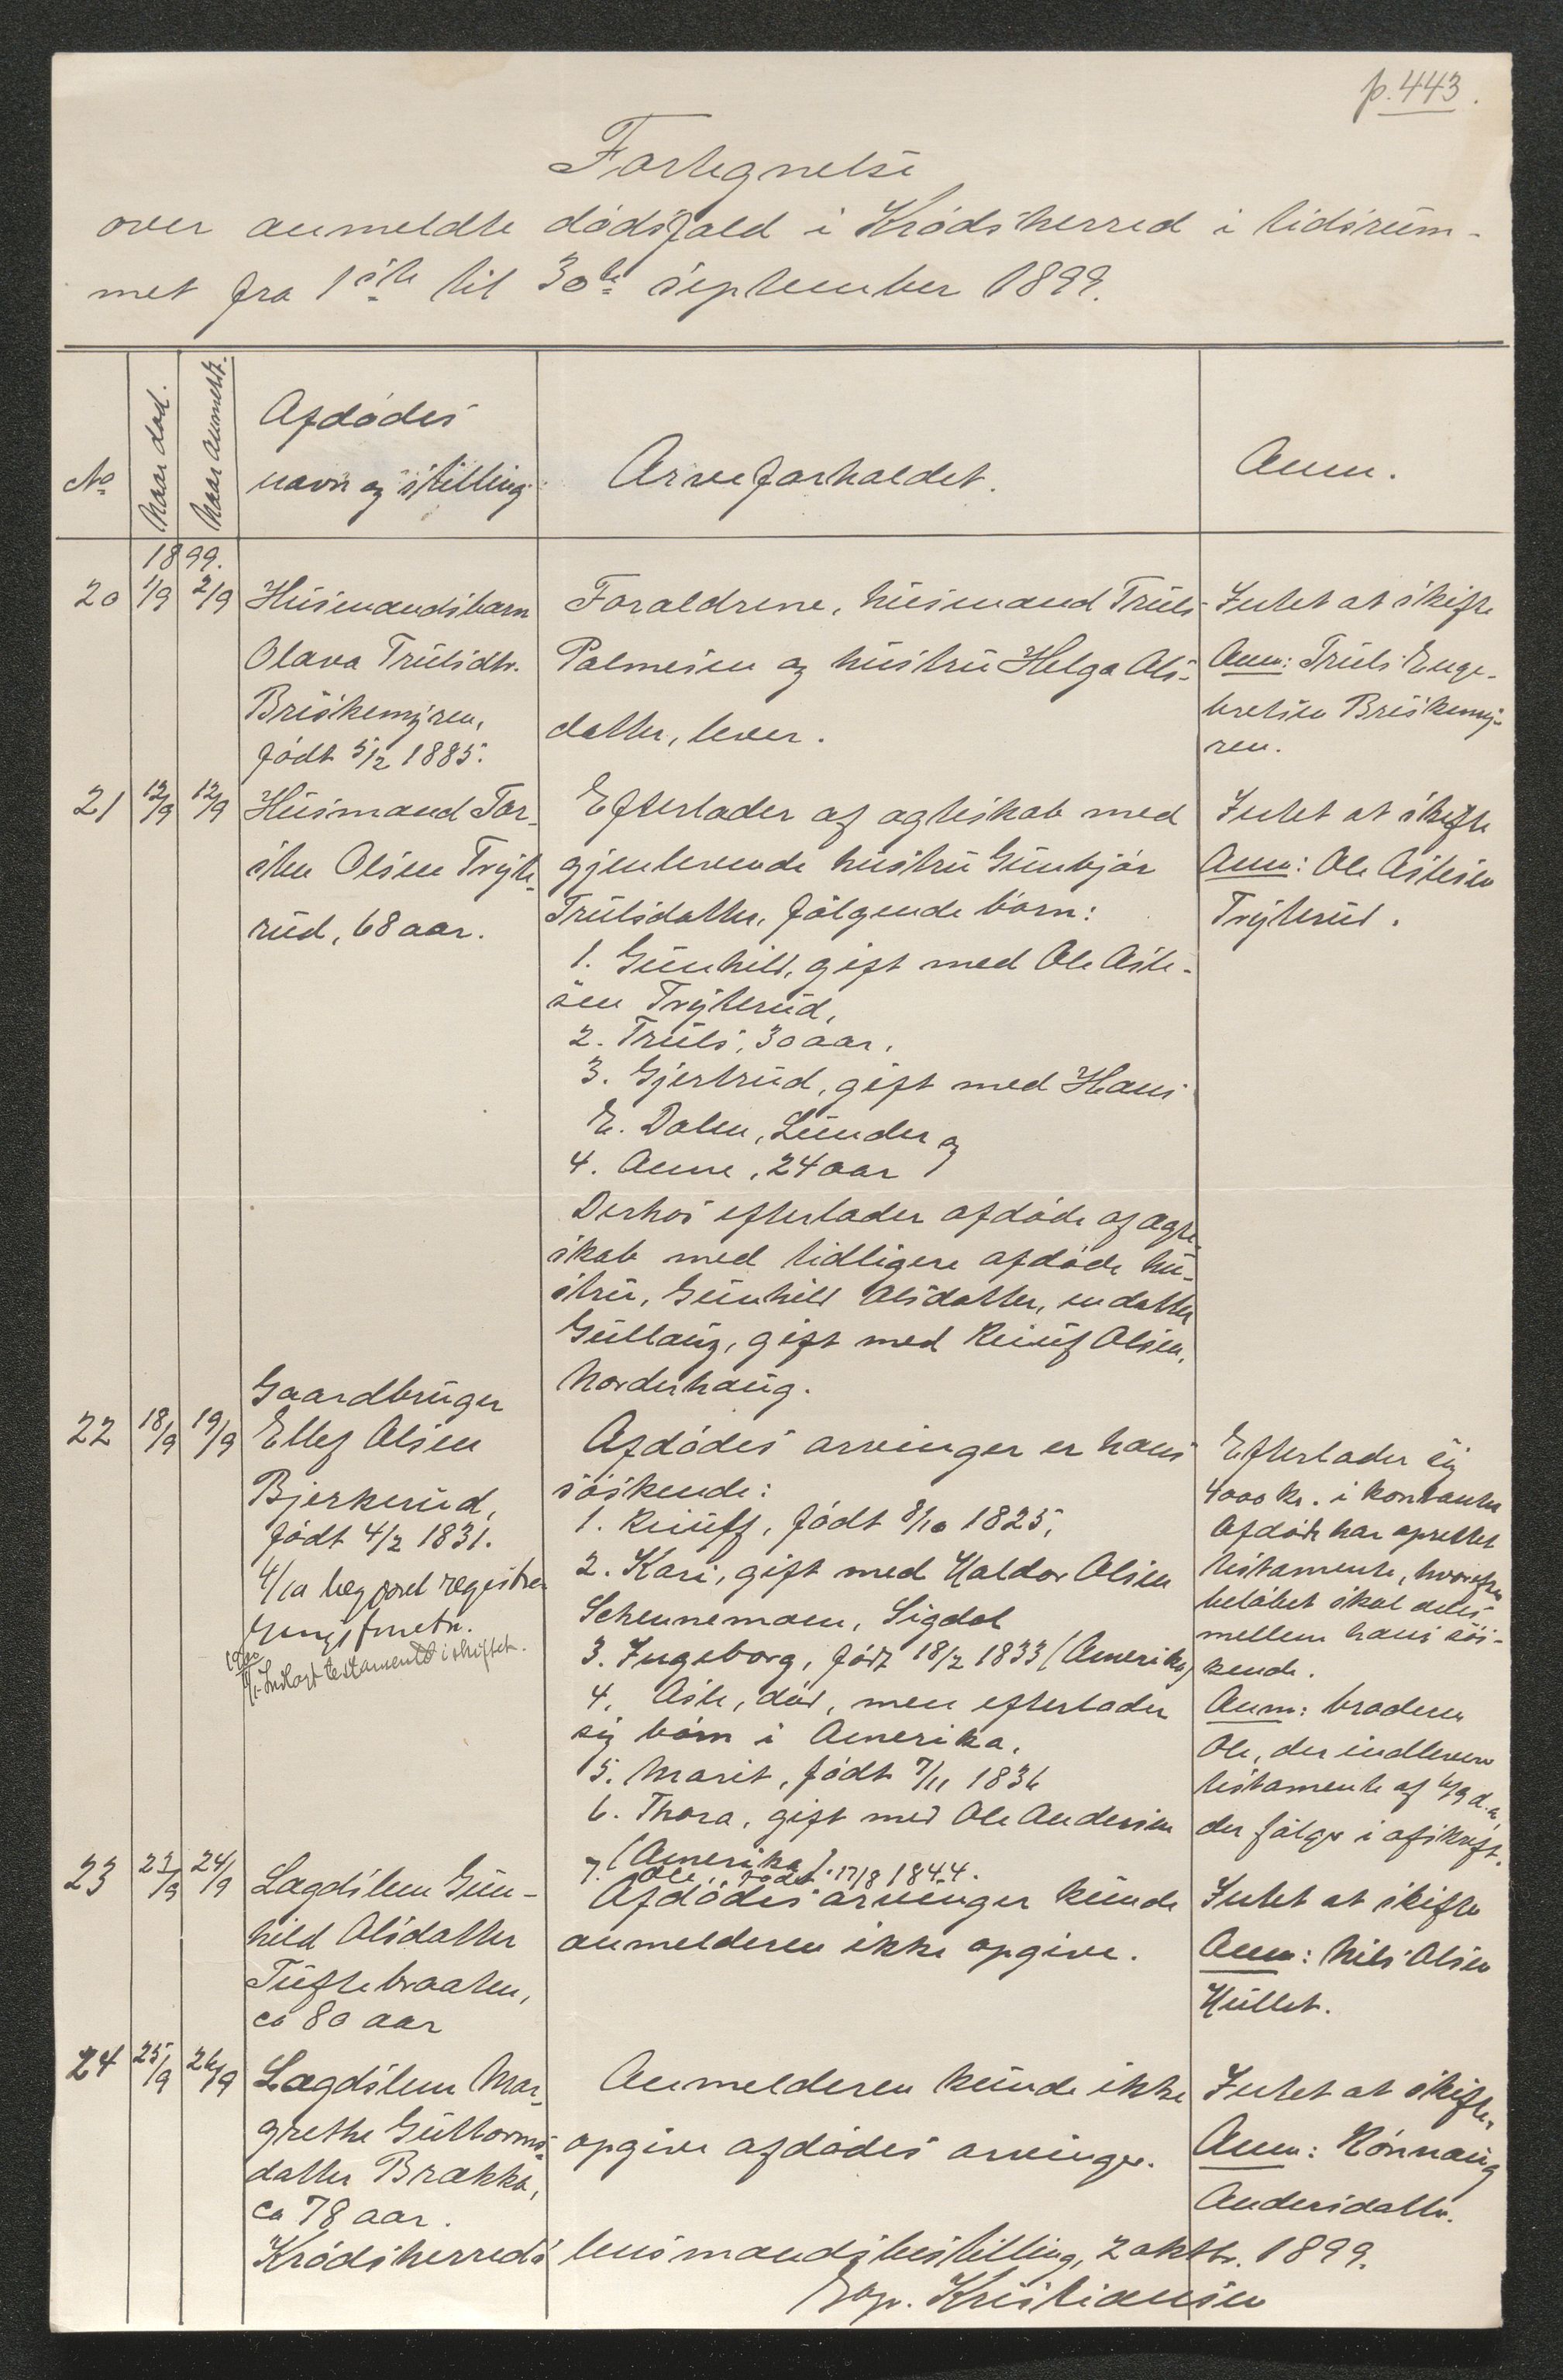 p. 443.
Fortegnelse
over anmeldte dødsfald i Krødsherred i tidsrum-
met fra 1ste til 30te september 1899.
No
Naar død.
Naar anmeldt.
Afdødes
navn og stilling.
Arveforholdet.
Anm.
1899.
20 1/9 2/9
Husmandsbarn
Olava Trulsdtr.
Briskemyren,
født 5/2 1885.
Forældrene, husmand Truls
Palmesen og hustru Helga Ols-
datter, lever.
Intet at skifte
Anm: Truls Enge-
bretsen Briskemy-
ren.
21 12/9 12/9
Husmand Tor-
sten Olsen Tryte-
rud, 68 aar.
Efterlader af ægteskab med
gjenlevende hustru Gunbjør
Trulsdatter, følgende børn:
1. Gunhild, gift med Ole Asle-
sen Tryterud,
2. Truls, 30 aar,
3. Gjertrud, gift med Hans
E. Dalen, Lunder og
4. Anne, 24 aar
Derhos efterlader afdøde af ægte-
skab med tidligere afdøde hu-
stru, Gunhild Olsdatter, en datter
Gullaug, gift med Knuf Olsen,
Norderhaug.
Intet at skifte
Anm: Ole Aslesen
Tryterud.
22 18/9 19/9
Gaardbruger
Ellef Olsen
Bjerkerud,
født 4/2 1831.
4/10
Indlagt testamentet i skiftet.
Afdødes arvinger er hans
søskende:
1. født 8/10 1825,
2. Kari, gift med Haldor Olsen
Sigdal
3. Ingeborg, født 18/2 1833 (Amerika)
4. Asle, død, men efterlader
sig børn i Amerika,
5. Marit, født 7/11 1836
6. Thora, gift med Ole Andersen
(Amerika).
7. Ole, født 17/8 1844.
Efterlader sig
4000 kr. i kontanter
Afdøde har oprettet
testamente, hvorefter
beløbet skal deles
mellem hans søs-
kende.
Anm: broderen
Ole, der indleverer
testamente af 6/9 d.a.
der følger i afskrift.
23 23/9 24/9
Lægdslem Gun-
hild Olsdatter
Tuftebraaten,
ca 80 aar
Afdødes arvinger kunde
anmelderen ikke opgive.
Intet at skifte
Anm: Nils Olsen
Hullet.
24 25/9 26/9
Lægdslem Mar-
grethe Guttorms-
datter Brækka,
ca 78 aar.
Anmelderen kunde ikke
opgive afdødes arvinger.
Intet at skifte,
Anm: Rønnaug
Andersdatter.
Krødsherreds lensmandsbestilling, 2 oktbr. 1899.
Kristiansen